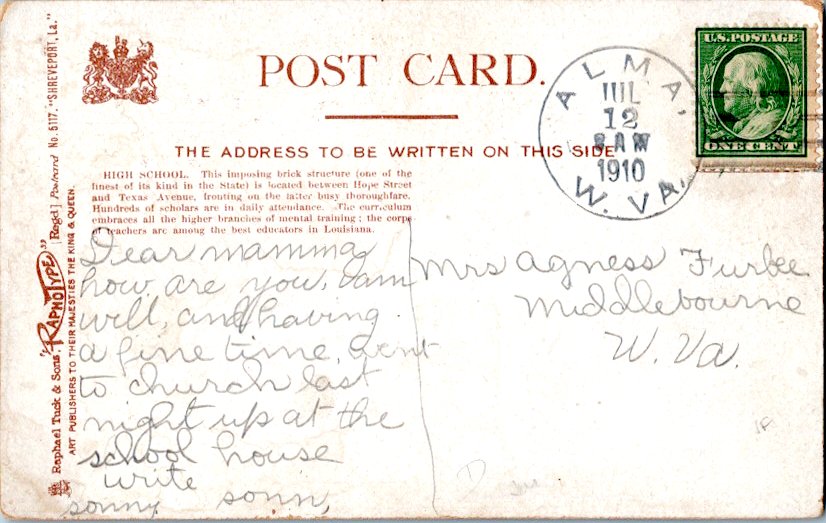 POST CARD.
THE ADDRESS TO BE WRITTEN ON THIS SIDE
HIGH SCHOOL. This imposing brick structure (one of the
finest of its kind in the State) is located between Hope Street
and Texas Avenue, fronting on the latter busy thoroughfare.
Hundreds of scholars are in daily attendance. The curriculum
embraces all the higher branches of mental training; the corps
of teachers are among the best educators in Louisiana.
ALMA,
JUL
12
8 AM
1910
W. VA.
U.S. POSTAGE
ONE CENT
Dear mamma
how are you, I am
will, and having
a fine time, went
to church last
night up at the
school house
write
sonny sonn,
Mrs Agness Furbee
Middlebourne
W. Va.
Raphael Tuck & Sons' "RAPHOTYPE" [Regd.] Postcard No. 5117. "SHREVEPORT, La."
ART PUBLISHERS TO THEIR MAJESTIES THE KING & QUEEN.
18